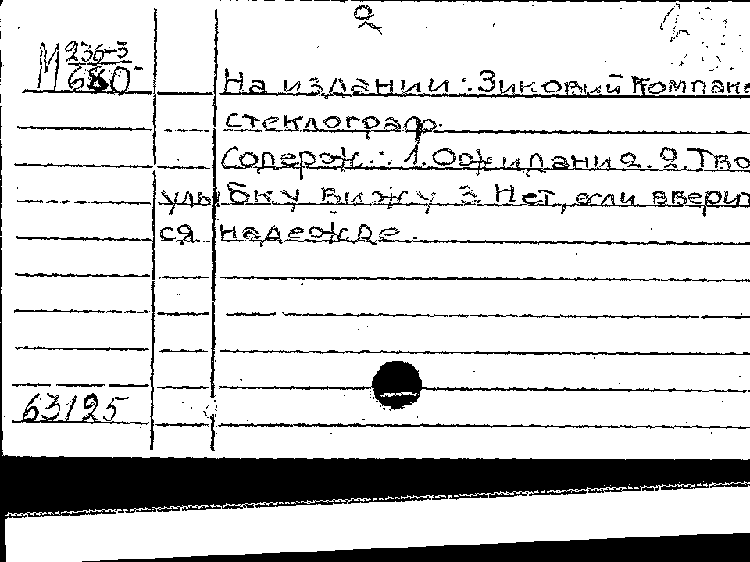 2
М 236-3
680
На издании: Зиковий Компан
стеклограф.
Содерж.: 1. Ожидание. 2. Тво
улыбку вижу 3. Нет, если вверит
ся надежде.
63125